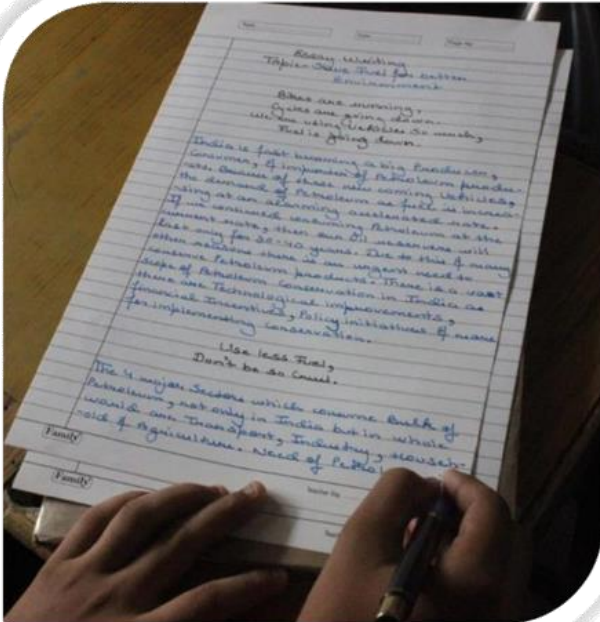 Date
Page No.
Essay Writing
Topic- Save Fuel for better
Environment
Bikes are running,
Cycles are going down.
We are using Vehicles so much,
Fuel is going down.
India is fast becoming a big Producer,
Consumer, & importer of Petroleum produ-
-cts. Because of these new coming Vehicles,
the demand of Petroleum as fuel is increa-
-sing at an alarming accelerated rate.
If we continued consuming Petroleum at the
current rate, then our Oil reserves will
last only for 30-40 years. Due to this & many
other reasons there is an urgent need to
conserve Petroleum products. There is a vast
scope of Petroleum Conservation in India as
there are Technological improvements,
financial Incentives, Policy initiatives & more
for implementing conservation.
Use less Fuel,
Don't be so Cruel.
The 4 major Sectors which consume Bulk of
Petroleum, not only in India but in whole
world are Transport, Industry, Househ-
-old & Agriculture. Need of Petrol
Family
Family
Teacher Sig.